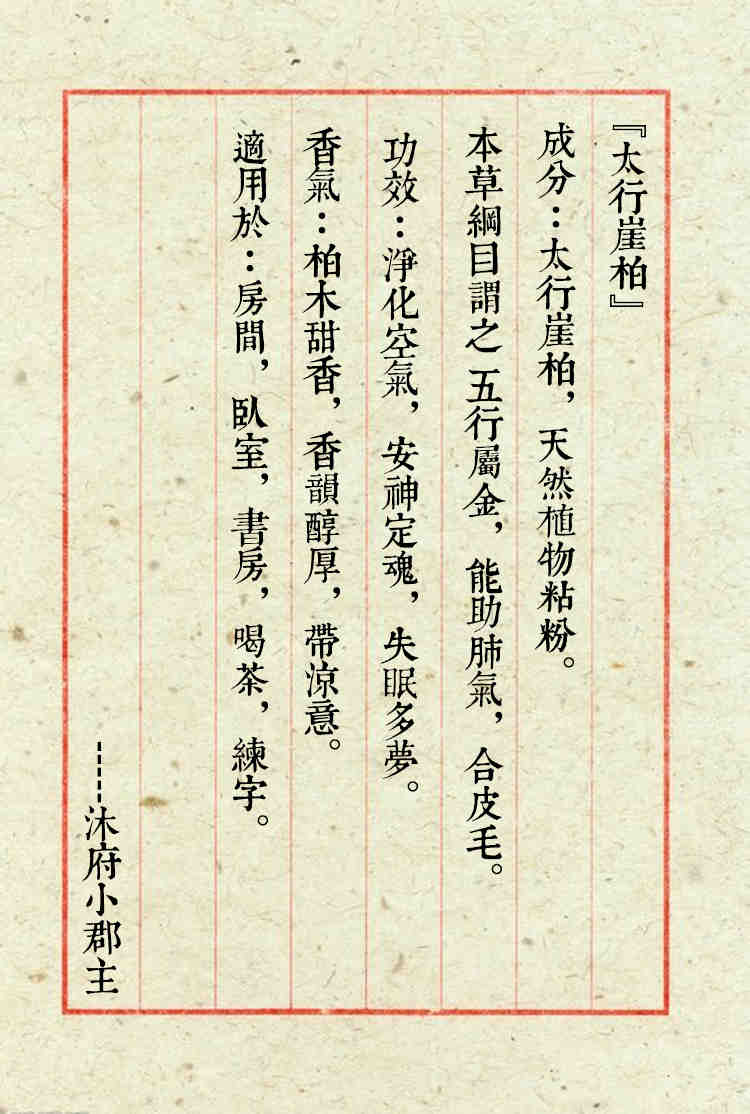 『太行崖柏』
成分：太行崖柏，天然植物粘粉。
本草綱目謂之 五行屬金，能助肺氣，合皮毛。
功效：淨化空氣，安神定魂，失眠多夢。
香氣：柏木甜香，香韻醇厚，帶涼意。
適用於：房間，臥室，書房，喝茶，練字。
-----沐府小郡主